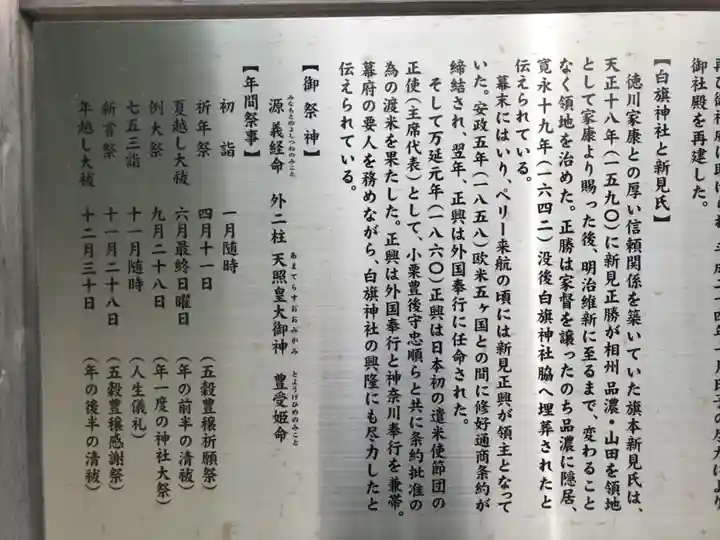 御社殿を再建した。
【白旗神社と新見氏】
徳川家康との厚い信頼関係を築いていた旗本新見氏は、
天正十八年(一五九〇)に新見正勝が相州 品濃・山田を領地
として家康より賜った後、明治維新に至るまで、変わること
なく領地を治めた。正勝は家督を譲ったのち品濃に隠居、
寛永十九年(一六四二)没後白旗神社脇へ埋葬されたと
伝えられている。
幕末にはいり、ペリー来航の頃には新見正興が領主となって
いた。安政五年(一八五八)欧米五ヶ国との間に修好通商条約が
締結され、翌年、正興は外国奉行に任命された。
そして万延元年(一八六〇)正興は日本初の遣米使節団の
正使(主席代表)として、小栗豊後守忠順らと共に条約批准の
為の渡米を果たした。正興は外国奉行と神奈川奉行を兼帯。
幕府の要人を務めながら、白旗神社の興隆にも尽力したと
伝えられている。
【御祭神】
源 義経命 外二柱 天照皇大御神 豊受姫命
みなもとのよしつねのみこと あまてらすおおみかみ とようけひめのみこと
【年間祭事】
初詣 一月随時
祈年祭 四月十一日 (五穀豊穣祈願祭)
夏越し大祓 六月最終日曜日 (年の前半の清祓)
例大祭 九月二十八日 (年一度の神社大祭)
七五三詣 十一月随時 (人生儀礼)
新嘗祭 十一月二十八日 (五穀豊穣感謝祭)
年越し大祓 十二月三十日 (年の後半の清祓)